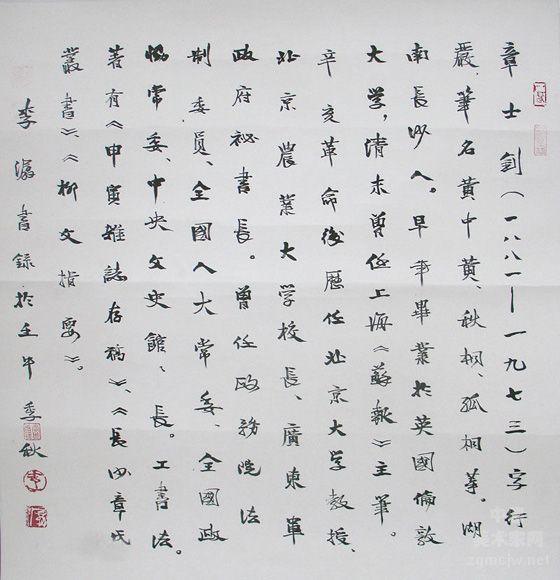 章士釗(一八八一——一九七三)字行
嚴,筆名黃中黃、秋桐、孤桐等。湖
南長沙人。早年畢業於英國倫敦
大学,清末曾任上海《蘇報》主筆。
辛亥革命後歷任北京大学教授、
北京農業大学校長、廣東軍
政府祕書長。曾任政務院法
制委員、全國人大常委、全國政
協常委、中央文史館、長。工書法。
著有《甲寅雜誌存稿》、《長沙章氏
叢書》、《柳文指要》。
李瀛書錄於壬午季秋
zgmcjw.net